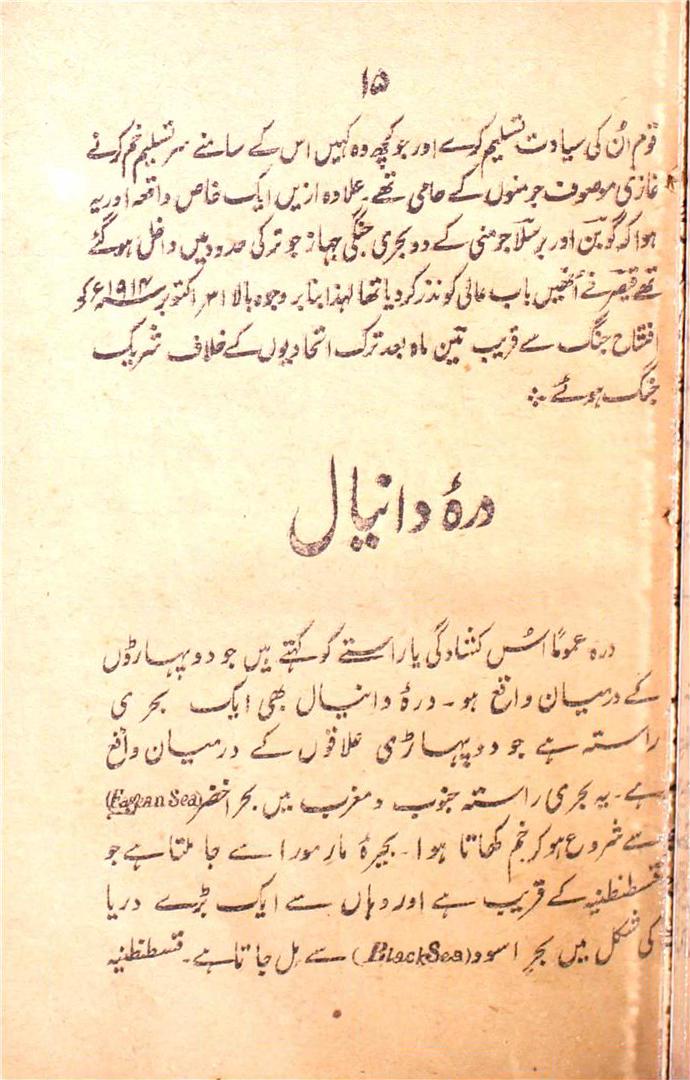 ۱۵
قوم اُن کی سیادت تسلیم کرے اور جو کچھ وہ کہیں اس کے سامنے سر تسلیم خم کرنے
غازی موصوف جرمنوں کے حامی تھے۔ علاوہ ازیں ایک خاص واقعہ اور یہ
ہوا کہ گوبن اور برسلا جرمنی کے دو بحری جنگی جہاز جو ترکی حدود میں داخل ہو گئے
تھے قیصر نے اُنھیں باب عالی کو نذر کر دیا تھا لہذا بنا بر وجوہ بالا ۳۱ اکتوبر ۱۹۱۴ء کو
افتتاح جنگ سے قریب تین ماہ بعد ترک اتحادیوں کے خلاف شریک
جنگ ہوئے
درۂ دانیال
درہ عموماً اُس کشادگی یا راستے کو کہتے ہیں جو دو پہاڑوں
کے درمیان واقع ہو۔ درۂ دانیال بھی ایک بحری
راستہ ہے جو دو پہاڑی علاقوں کے درمیان واقع
ہے۔ یہ بحری راستہ جنوب و مغرب میں بحر اخضر (Eagean Sea)
سے شروع ہو کر خم کھاتا ہوا۔ بحیرۂ مارمورا سے جا ملتا ہے جو
قسطنطنیہ کے قریب ہے اور وہاں سے ایک بڑے دریا
کی شکل میں بحرِ اسود (Black Sea) سے مل جاتا ہے۔ قسطنطنیہ